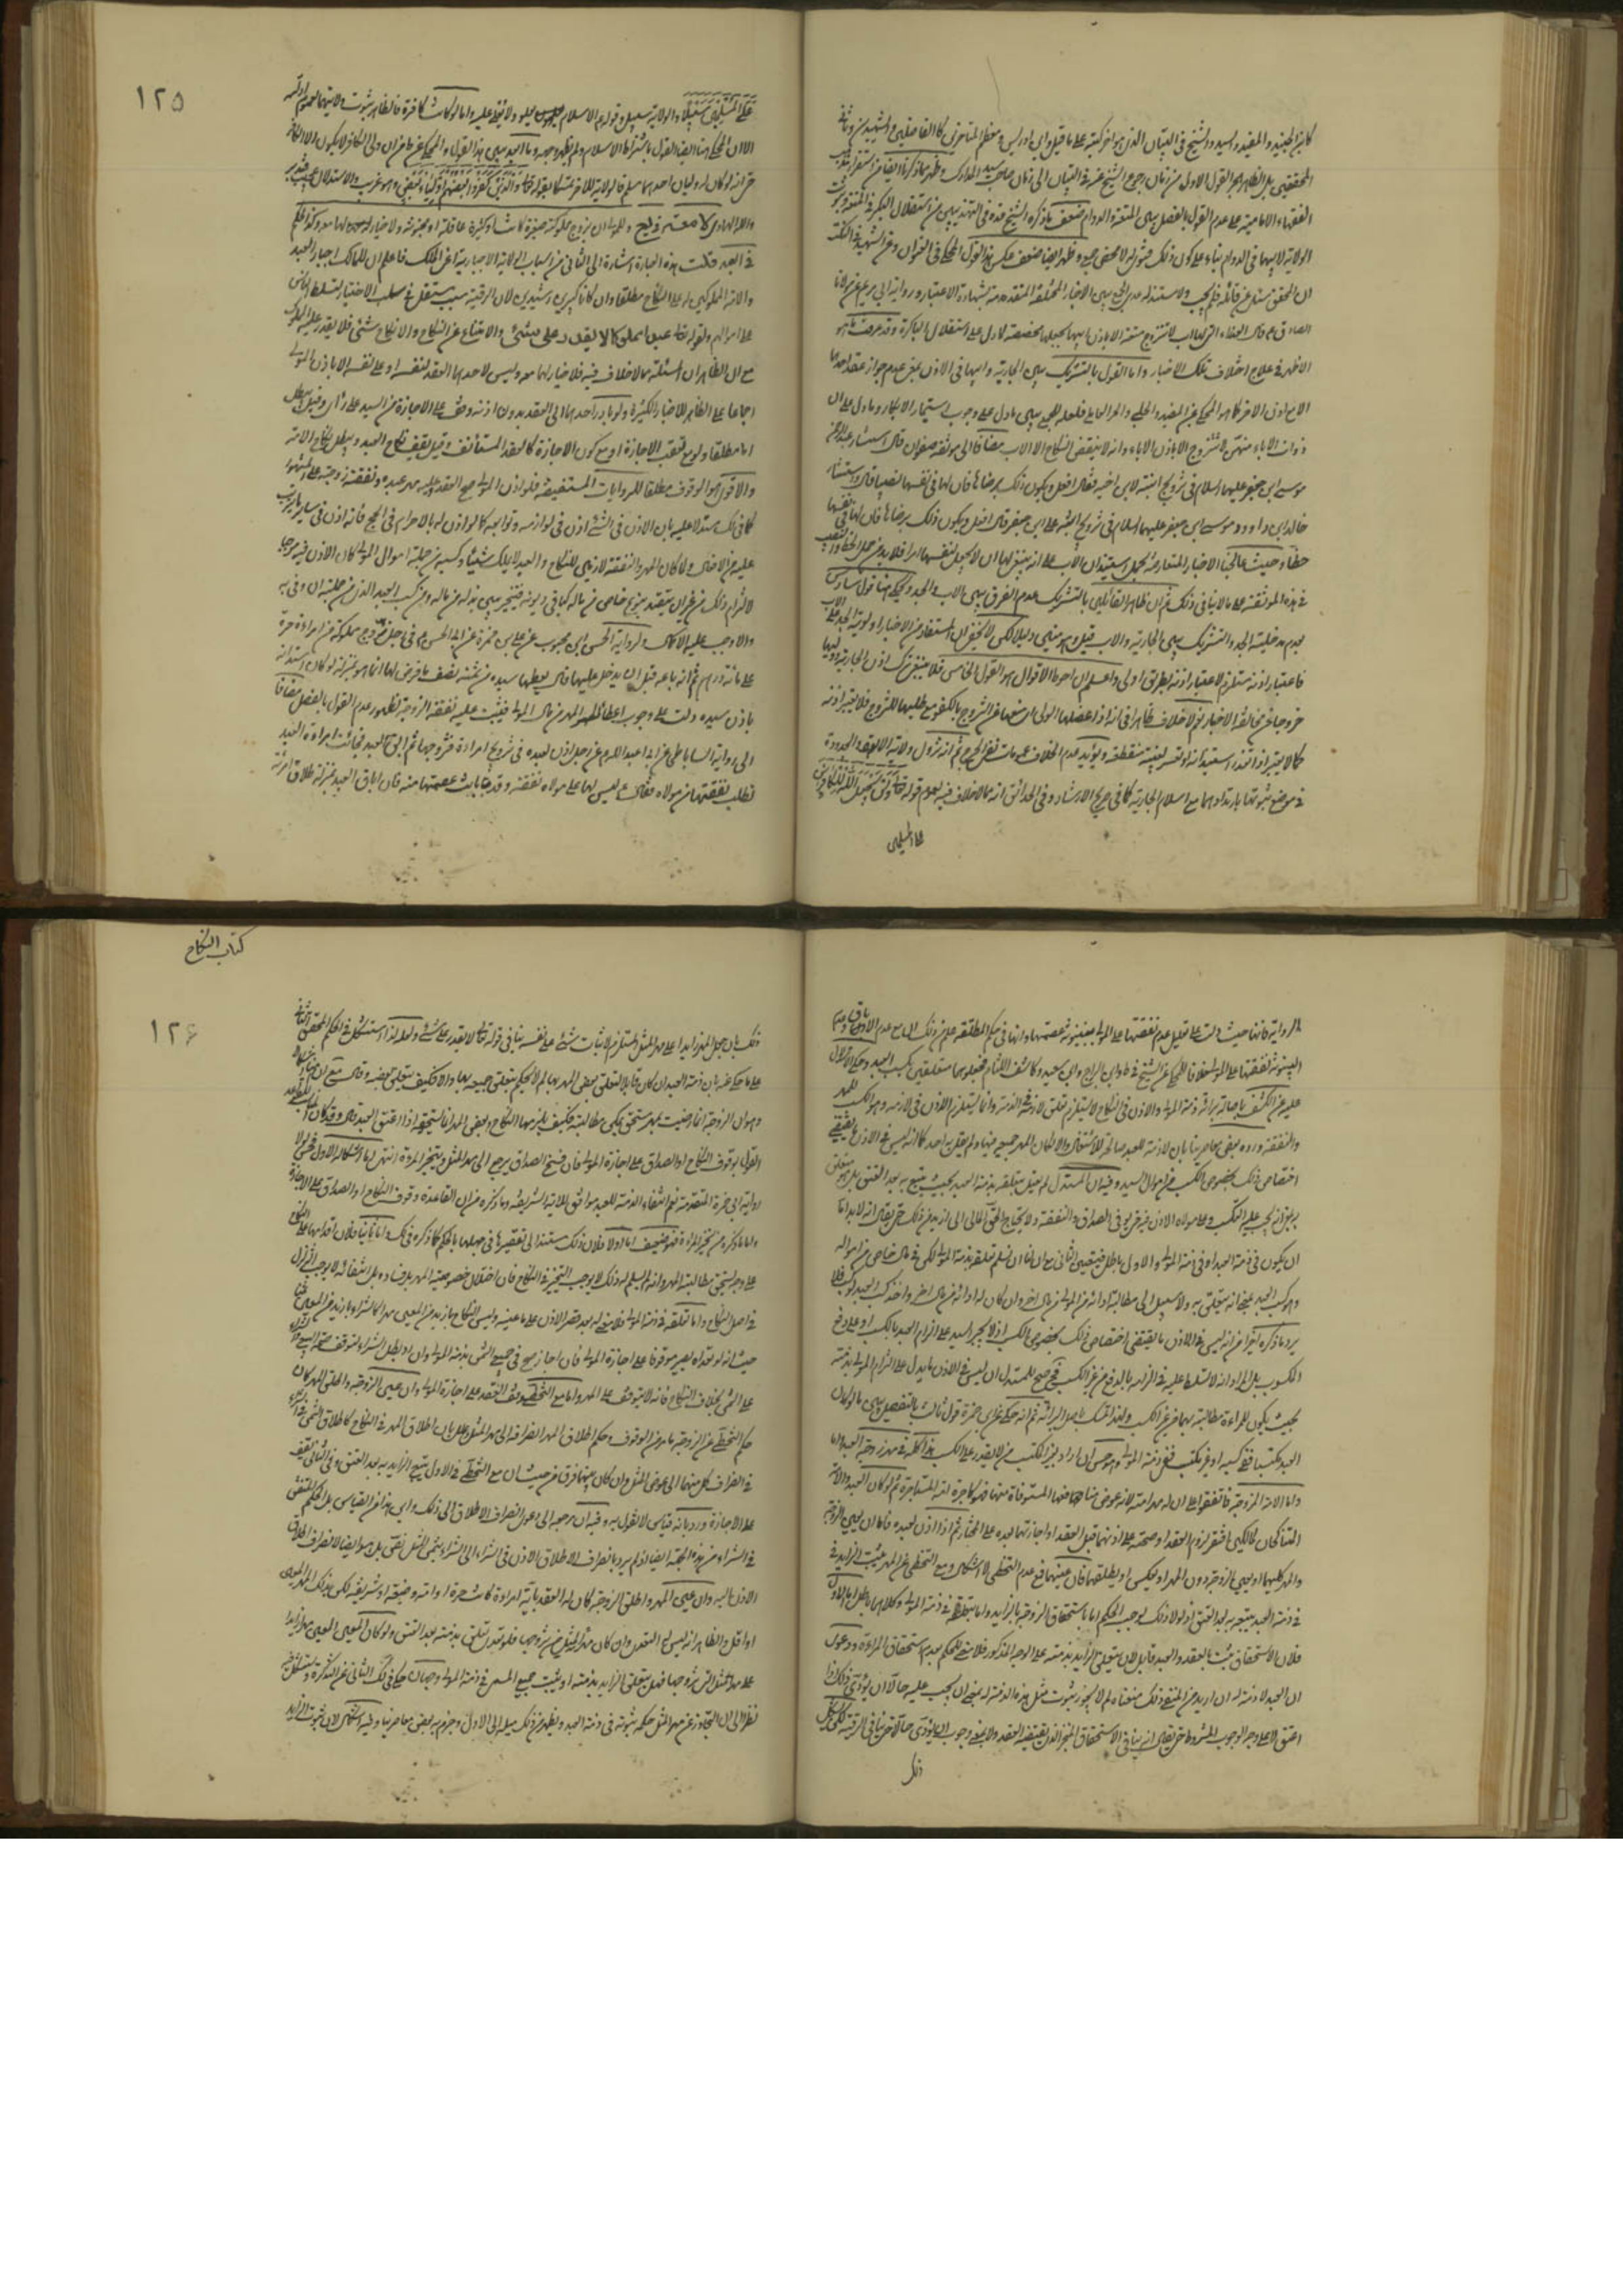 كابن الجنيد والمفيد والسيد والشيخ في التبيان الذي هو اخر كتبه على ما قيل وابن ادريس ومعظم المتأخرين كالفاضلين والشهيدين وثاني
المحققين بل الظاهر هجر القول الاول من زمان رجوع الشيخ عنه في التبيان الى زمان صاحب المدارك وظهر مما ذكرنا ايضا من استقرار مذهب
الفقهاء الامامية على عدم القول بالفصل بين المتعة والدوام ضعف ما ذكره الشيخ قده في التهذيبين من استقلال البكر في المتعة وثبوت
الولاية لابيها في الدوام بناء على كون ذلك قولا له لا محض جمع وظهر ايضا ضعف عكس هذا القول المحكي في
ان المحقق سئل عن قائله فلم يجب ولا مستند له عدى الجمع بين الاخبار المختلفة المتقدمة بشهادة الاعتبار ورواية ابي مريم عن مولانا
الصادق ع قال العذراء التي لها اب لا تتزوج متعة الا باذن ابيها بجعلها مخصصة لما دل على استقلال الباكرة وقد عرفت ما هو
الاظهر في علاج اختلاف تلك الاخبار واما القول بالتشريك بين الجارية وابيها في الاذن بمعنى عدم جواز عقد احدهما
الا مع اذن الاخر كما هو المحكي عن المفيد والحلبي والحر العاملي فلعله للجمع بين ما دل على وجوب استيمار الابكار وما دل على ان
ذوات الاباء منهن لا تتزوج الا باذن الاباء وانه لا ينقض النكاح الا الاب مضافا الى موثقة صفوان قال استشار عبد الرحمن
موسى ابن جعفر عليهما السلام في تزويج ابنته لابن اخيه فقال افعل ويكون ذلك برضاها فان لها في نفسها نصيبا قال واستشار
خالد ابن داود موسى ابن جعفر عليهما السلام في تزويج ابنته علي ابن جعفر قال افعل ويكون ذلك برضاها فان لها في نفسها
حظا وحيث عالجنا الاخبار المتعارضة بحمل استيذان الاب على انه ينبغي لها ان لا تجعل لنفسها امرا فلا بد من حمل الحظ والنصيب
في هذه الموثقة على ما لا ينافي ذلك ثم ان ظاهر القائلين بالتشريك عدم الفرق بين الاب والجد ويحكى هنا قول سادس
بعدم مدخلية الجد والتشريك بين الجارية والاب قيل وهو مبني دليلا لكن لا يخفى ان المستفاد من الاخبار اولوية الجد على الاب
فاعتبار اذنه مستلزم لاعتبار اذنه بطريق اولى واعلم ان احوط الاقوال هو القول الخامس فلا ينبغي ترك اذن الجارية ووليها
خروجا عن مخالفة الاخبار ثم لا خلاف ظاهرا في انه اذا عضلها الولي اي منعها عن التزويج بالكفو مع طلبها للتزويج فلا يعتبر اذنه
كما لا يعتبر اذا تعذر استيذانه او تعسر لغيبته منقطعة ويؤيد عدم الخلاف عمومات نفي الحرج ثم انه تزول ولاية الاب والجدودة
في موضع ثبوتها بارتدادهما مع اسلام الجارية كما في صريح الارشاد وفي الحدائق انه مما لا خلاف فيه لعموم قوله تعالى ولن يجعل الله للكافرين
على المسلمين
١٢٥
على المسلمين سبيلا والولاية سبيل وقوله ع الاسلام يعلو ولا يعلى عليه واما لو كانت كافرة فالظاهر ثبوت ولايتهما لعموم ادلته
الا ان المحكي هنا ايضا القول باشتراط الاسلام ولم يظهر وجهه وما ابعد بين هذا القول والمحكي عن ظاهر ان ولي الكافر لا يكون الا الكافر
حتى انه لو كان له وليان احدهما مسلم فالولاية للاخر تمسكا بقوله تعالى والذين كفروا بعضهم اولياء بعض وهو غريب والاستدلال
والله الهادي وللمولى ان يزوج مملوكته صغيرة كانت او كبيرة عاقلة او مجنونة ولا خيار لها معه وكذا الحكم
في العبد قلت هذه العبارة اشارة الى الثاني من اسباب الولاية الاجبارية اعني الملك فاعلم ان للمالك اجبار العبد
والامة المملوكين له على النكاح مطلقا وان كانا كبيرين رشيدين لان الرقية سبب مستقل في سلب الاختيار لتسلط الناس
على اموالهم ولقوله تعالى عبدا مملوكا لا يقدر على شيء والامتناع عن النكاح والانكاح شيء فلا يقدر عليه المملوك
مع ان الظاهر ان المسئلة مما لا خلاف فيه فلا خيار لهما معه وليس لاحدهما العقد لنفسه او على نفسه الا باذن المولى
اجماعا على الظاهر للاخبار الكثيرة ولو بادر احدهما الى العقد بدون اذنه وقف على الاجازة من السيد على رأي وقيل يبطل
اما مطلقا ولو مع تعقب الاجازة او مع كون الاجازة كالعقد المستأنف وقيل يقف نكاح العبد ويبطل نكاح الامة
والاقوى هو الوقوف مطلقا للروايات المستفيضة فلو اذن المولى صح العقد وعليه مهر عبده ونفقة زوجته على المشهور
كما في لك مستدلا عليه بان الاذن في الشيء اذن في لوازمه وتوابعه كما لو اذن له بالاحرام في الحج فانه اذن في ساير ما يترتب
عليه من الافعال ولما كان المهر والنفقة لازمين للنكاح والعبد لا يملك شيئا وكسبه من جملة اموال المولى كان الاذن فيه موجبا
لالتزام ذلك من غير ان يتقيد بنوع خاص من ماله كما في ديونه فيتخير بين بذله من ماله ومن كسب العبد الذي من جملته ان وفى به
والا وجب عليه الاكمال ولرواية الحسن ابن محبوب عن علي بن ابي حمزة عن ابي الحسن ع في رجل زوج مملوكه من امراة حرة
على مائة درهم ثم انه باعه قبل ان يدخل عليها قال يعطيها سيده من ثمنه نصف ما فرض لها انما هو بمنزلة لو كان استدانه
باذن سيده دلت على وجوب اعطاء المهر من مال المولى فيثبت عليه نفقة الزوجة لظهور عدم القول بالفصل مضافا
الى رواية الساباطي عن ابا عبد الله ع عن رجل اذن لعبده في تزويج امراة فتزوجها ثم ابق العبد فجائت امراة العبد
تطلب نفقتها من مولاه فقال ليس لها على مولاه نفقة وقد بانت عصمتها منه فان اباق العبد بمنزلة طلاق امرئته
كتاب النكاح
الرواية فانها حيث دلت على تعليل عدم نفقتها على المولى ببينونة عصمتها وانها في حكم المطلقة علم من ذلك ان مع عدم الاباق وعدم
البينونة نفقتها على المولى خلافا للمحكي عن الشيخ في ط وابن البراج وابن سعيد وكاشف اللثام فجعلوهما متعلقين بكسب العبد وحكي الاستدلال
عليه عن الكشف باصالة برائة ذمة المولى والاذن في النكاح لا يستلزم تعلق لازمه في الذمة وانما يستلزم الاذن في لازمه وهو الكسب للمهر
والنفقة ورده بعض معاصرينا بان لا ذمة للعبد صالحة للاشتغال والا لكان المهر جميعه فيها ولم يقل به احد كما انه ليس في الاذن ما يقتضي
اختصاص ذلك بخصوص الكسب من اموال السيد وفيه ان المستدل لم يقل بتعلقه بذمة العبد بحيث يتبع به بعد العتق بل هو متعلق
بمعنى انه يجب عليه التكسب وعلى مولاه الاذن فيه حتى يوفي الصداق والنفقة ولا يحتاج الحق المالي الى ازيد من ذلك حتى يقال انه لا بد اما
ان يكون في ذمة العبد او في ذمة المولى والاول باطل فيتعين الثاني مع ان لنا ان نسلم تعلقه بذمة المولى لكن في مال خاص من امواله
وهو كسب العبد بمعنى انه يتعلق به ولا سبيل الى مطالبة ادائه من المولى من مال اخر وان كان له ادائه من مال اخر واخذ كسب العبد لو كسب فلا
يرد ما ذكره اخيرا من انه ليس في الاذن ما يقتضي اختصاص ذلك بخصوص الكسب اذ لا يجبر السيد على الزام العبد بالكسب او على دفع
الكسوب بل المراد انه لا تسلط عليه في الزامه بالدفع من غير الكسب فصح للمستدل ان ليس في الاذن ما يدل على الزام المولى بذمته
بحيث يكون للمراة مطالبته بهما من غير الكسب ولهذا تمسك باصل البرائة ثم انه حكي عن ابن حمزة قول ثالث بالتفصيل بين ما لو كان
العبد مكتسبا ففي كسبه او غير مكتسب ففي ذمة المولى وهو حسن ان اراد بغير المكتسب من لا يقدر على الكسب هذا كله في مهر زوجة العبد
واما الامة المزوجة فاتفقوا على ان له مهر امته لانه عوض منافعها المستوفاة منها فهو كاجرة امته المستاجرة ثم لو كان العبد والامة
المتناكحان لمالكين افتقر لزوم العقد او صحته على اذنهما قبل العقد او اجازتهما بعده على المختار ثم اذا اذن لعبده فاما ان يعين الزوجة
والمهر كليهما او يعين الزوجة دون المهر او بالعكس او يطلقهما فان عينهما فمع عدم التخطي لا اشكال ومع التخطي عن المهر يثبت الزايد
في ذمة العبد يتبع به بعد العتق اذ لولا ذلك لوجب الحكم اما باستحقاق الزوجة للزايد واما بتعلقه في ذمة المولى وكلاهما باطل اما الاول
فلان الاستحقاق يثبت بالعقد والعبد قابل لان يتعلق الزايد بذمته على الوجه المذكور فلا معنى للحكم بعدم استحقاق المراة ودعوى
ان العبد لا ذمة له ان اريد من المنفي ذلك منعناه لم لا يجوز ثبوت مثل هذه الذمة له بمعنى ان يجب عليه حالا ان يؤدي ذلك اذا
اعتق لا على وجه الوجوب المشروط حتى يقال انه ينافي الاستحقاق المنجز الذي يقتضيه العقد ولا بمعنى وجوب ان يؤدى حالا حتى ينافي الرقية لكن يشكل
ذلك
١٢۶
ذلك بان جعل المهر زايدا على مهر المثل المستلزم لاثبات شيء على نفسه ينافي قوله تعالى لا يقدر على شيء ولعله لذا استشكل في الحكم المحقق الثاني
على ما حكي عنه بان ذمة العبد ان كان قابلا لتعلق بعض المهر بها لم لا يحكم بتعلق جميعه بها والا فكيف يتعلق بعضه وقال
وهو ان الزوجة انما رضيت بمهر مستحق يمكن مطالبته فكيف يلزمها النكاح وبعض المهر انما يستحق اذا اعتق العبد قال وقد كان
القول بوقوف النكاح او الصداق على اجازة المولى فان فسخ الصداق يرجع الى مهر المثل ويتخير المراة انتهى اما اشكاله الاول فحسن لولا
رواية ابن حمزة المتقدمة نعم انتفاء الذمة للعبد موافق للاية الشريفة وما ذكره من ان القاعدة وقوف النكاح او الصداق على الاجازة
واما ما ذكره من تخير المراة فهو ضعيف اما اولا فلان ذلك مستند الى تقصيرها في جهلها بالحكم كما ذكره في لك واما ثانيا فلان اقدامها على النكاح
على وجه يستحق مطالبة المهر وانه لم يسلم له ذلك لا يوجب التخيير في النكاح فان اختلال خصوصية المهر بل فساده بل انتفائه لا يوجب التزلزل
في اصل النكاح واما تعلقه في ذمة المولى فلا معنى له بعد قصر الاذن على ما عينه وليس النكاح بازيد من المعين مهرا كالشراء بازيد من المعين ثمنا
حيث انه لو تعداه يصير موقوفا على اجازة المولى فان اجاز صح في جميع الثمن بذمة المولى وان رد بطل الشراء لتوقف صحة البيع
على الثمن بخلاف النكاح فانه لا يتوقف على المهر واما مع التخطي يوقف العقد على اجازة المولى وان عين الزوجة واطلق المهر كان
حكم التخطي عن الزوجة ما مر من الوقوف وحكم اطلاق المهر انصرافه الى مهر المثل وعلل بان اطلاق المهر في النكاح كاطلاق الثمن في الشراء
في انصراف كل منهما الى عوض المثل وان كان بينهما فرق من حيث ان مع التخطي في الاول يتبع الزايد به بعد العتق وفي الثاني يقف
على الاجازة ورد بانه قياس لا نقول به وفيه ان مرجعه الى دعوى انصراف الاطلاق الى ذلك واين هذا من القياس بل الحكم المتفق
في الشراء من هذه الجهة ايضا اذ لم يرد بانصراف الاطلاق الاذن في الشراء الى الشراء بثمن المثل نص بل هو ايضا لانصراف اطلاق
الاذن اليه وان عين المهر واطلق الزوجة كان له العقد باية امراة كانت حرة او امة وضيعة او شريفة لكن بذلك المهر المعين
او اقل والظاهر انه ليس له التعدي وان كان مهر المثل من تزوجها فلو تعدى تعلق بذمته بعد العتق ولو كان المعين المعين مهر زايدا
على مهر المثل التي تزوجها فهل يتعلق الزايد بذمته او يثبت جميع المسمى في ذمة المولى وجهان حكي في لك الثاني عن التذكرة واستشكل فيه
نظرا الى ان التجاوز عن مهر المثل حكمه ثبوته في ذمة العبد ويظهر من ذلك ميله الى الاول وجزم به بعض معاصرينا وفيه اشكال لان ثبوت الزايد